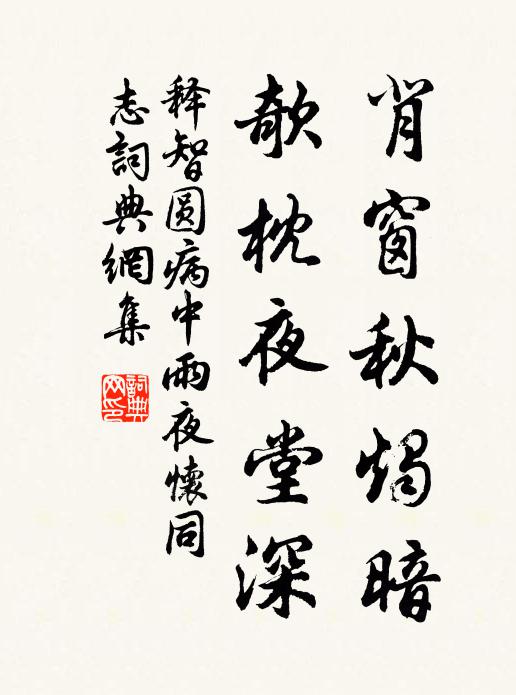 背窗秋燭暗
欹枕夜堂深
释智圓病中雨夜懷同
志詞典網集
詞典网印